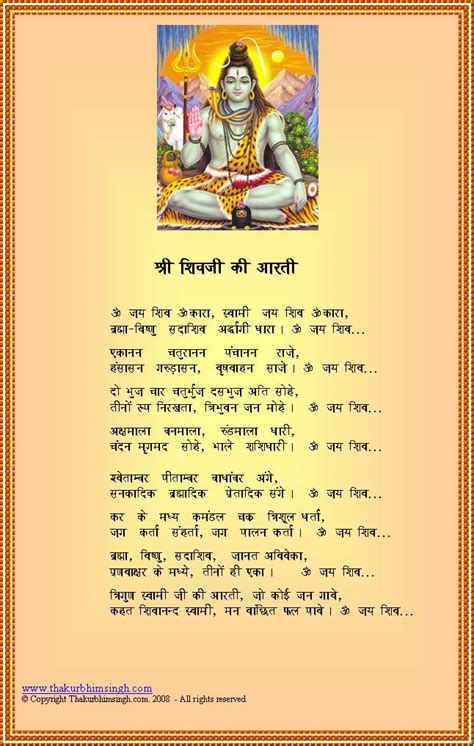 श्री शिवजी की आरती
ॐ जय शिव ॐकारा, स्वामी जय शिव ॐकारा,
ब्रह्मा-विष्णु सदाशिव अर्द्धांगी धारा। ॐ जय शिव...
एकानन चतुरानन पंचानन राजे,
हंसासन गरुड़ासन, वृषवाहन साजे। ॐ जय शिव...
दो भुज चार चतुर्भुज दसभुज अति सोहे,
तीनों रूप निरखता, त्रिभुवन जन मोहे। ॐ जय शिव...
अक्षमाला वनमाला, रुंडमाला धारी,
चंदन मृगमद सोहे, भाले शशिधारी। ॐ जय शिव...
श्वेताम्बर पीताम्बर वाघांवर अंगे,
सनकादिक ब्रह्मादिक प्रेतादिक संगे। ॐ जय शिव...
कर के मध्य कमंडल चक्र त्रिशूल धर्ता,
जग कर्ता संहर्ता, जग पालन कर्ता। ॐ जय शिव...
ब्रह्मा, विष्णु, सदाशिव, जानत अविवेका,
प्रणवाक्षर के मध्ये, तीनों ही एका। ॐ जय शिव...
त्रिगुण स्वामी जी की आरती, जो कोई जन गावे,
कहत शिवानन्द स्वामी, मन वांछित फल पावे। ॐ जय शिव...
www.thakurbhimsingh.com
© Copyright Thakurbhimsingh.com. 2008 - All rights reserved